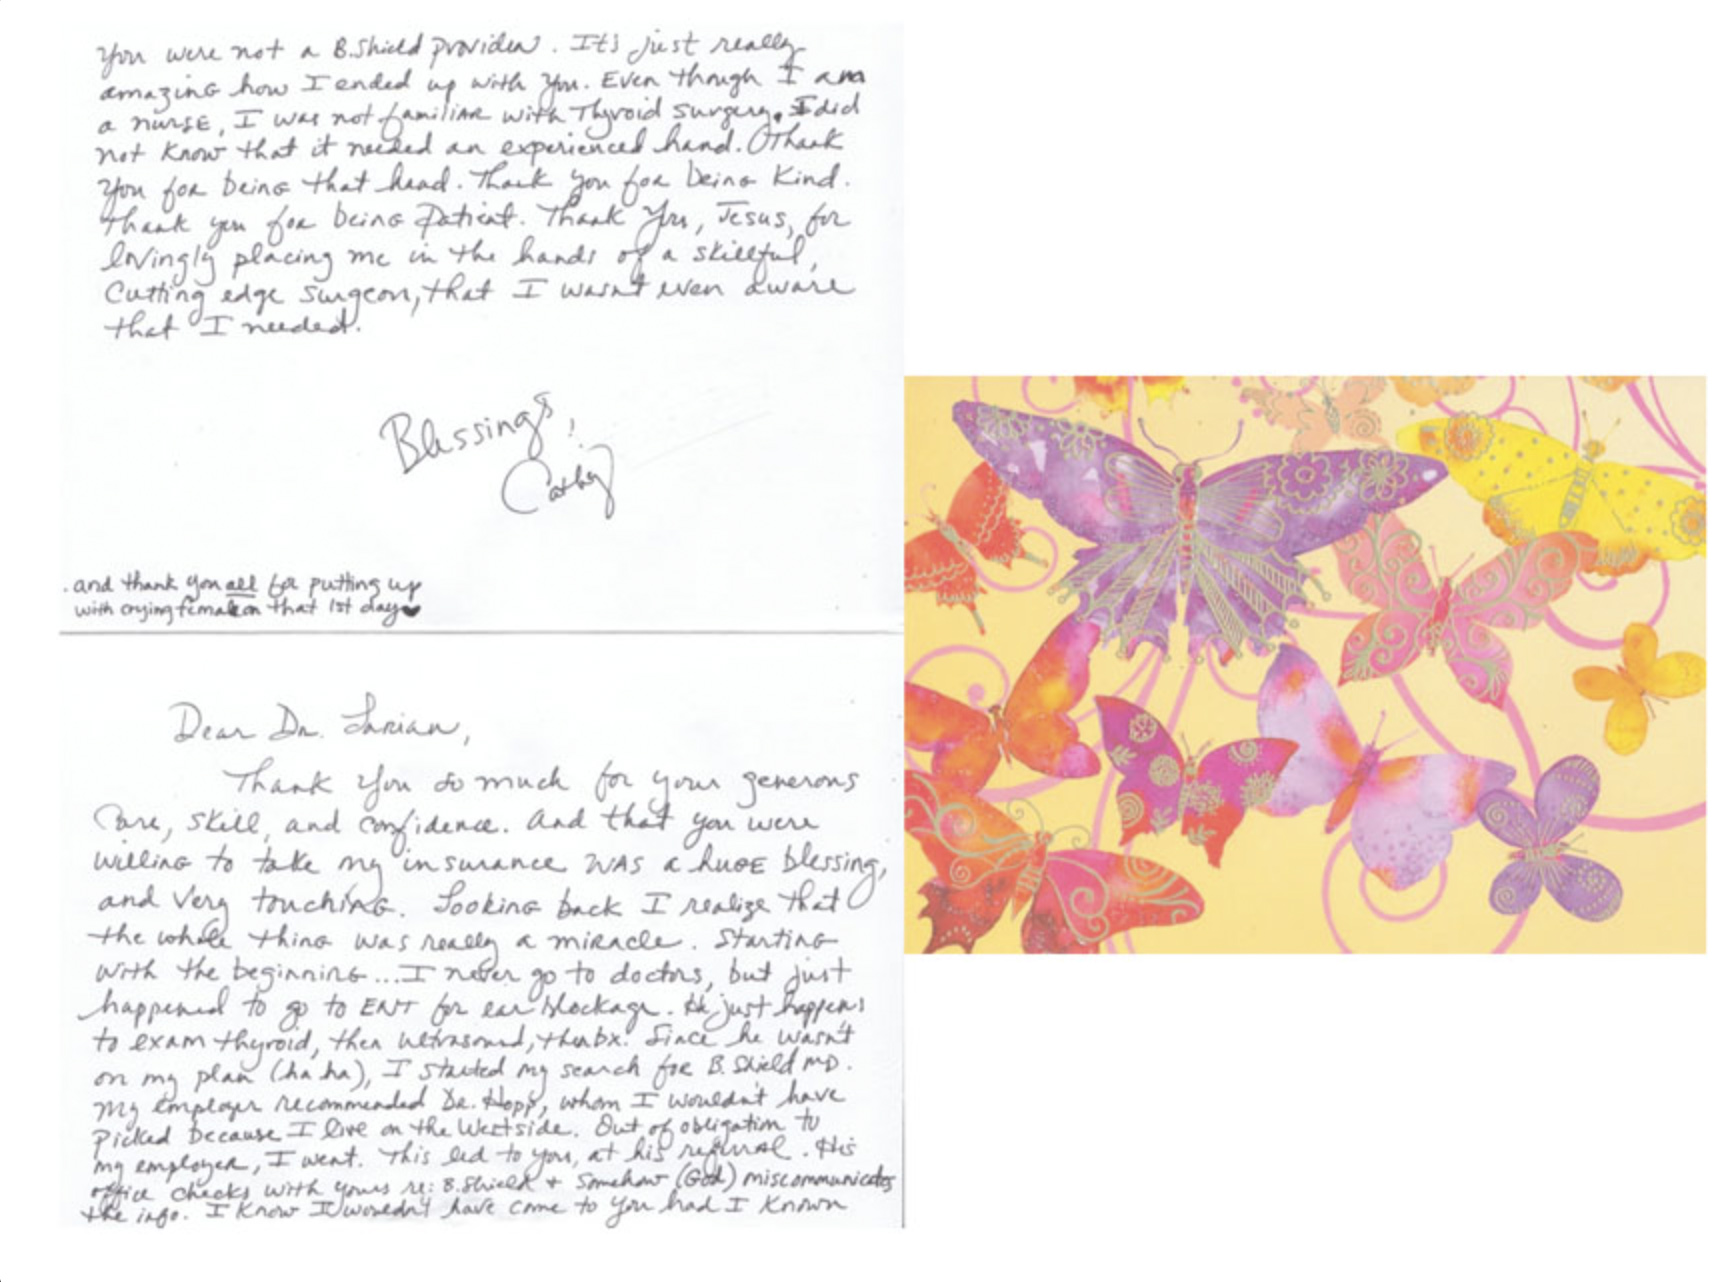 Dear Dr. Larian,
Thank you so much for your generous
Care, skill, and confidence. And that you were
willing to take my insurance was a huge blessing,
and very touching. Looking back I realize that
the whole thing was really a miracle. Starting
with the beginning...I never go to doctors, but just
happened to go to ENT for ear blockage. He just happens
to exam thyroid, then ultrasound, then bx. Since he wasn't
on my plan (ha ha), I started my search for B. Shield MD.
My employer recommended Dr. Hopp, whom I wouldn't have
picked because I live on the Westside. Out of obligation to
my employer, I went. This led to you, at his referral. His
office checks with yours re: B.Shield + Somehow (God) miscommunicates
the info. I know I wouldn't have come to you had I known
you were not a B.Shield provider. It's just really
amazing how I ended up with you. Even though I am
a nurse, I was not familiar with Thyroid surgery. I did
not know that it needed an experienced hand. Thank
you for being that hand. Thank you for being kind.
Thank you for being patient. Thank You, Jesus, for
lovingly placing me in the hands of a skillful,
cutting edge surgeon, that I wasn't even aware
that I needed.
Blessings,
Cathy
.and thank you all for putting up
with crying female on that 1st day ♥